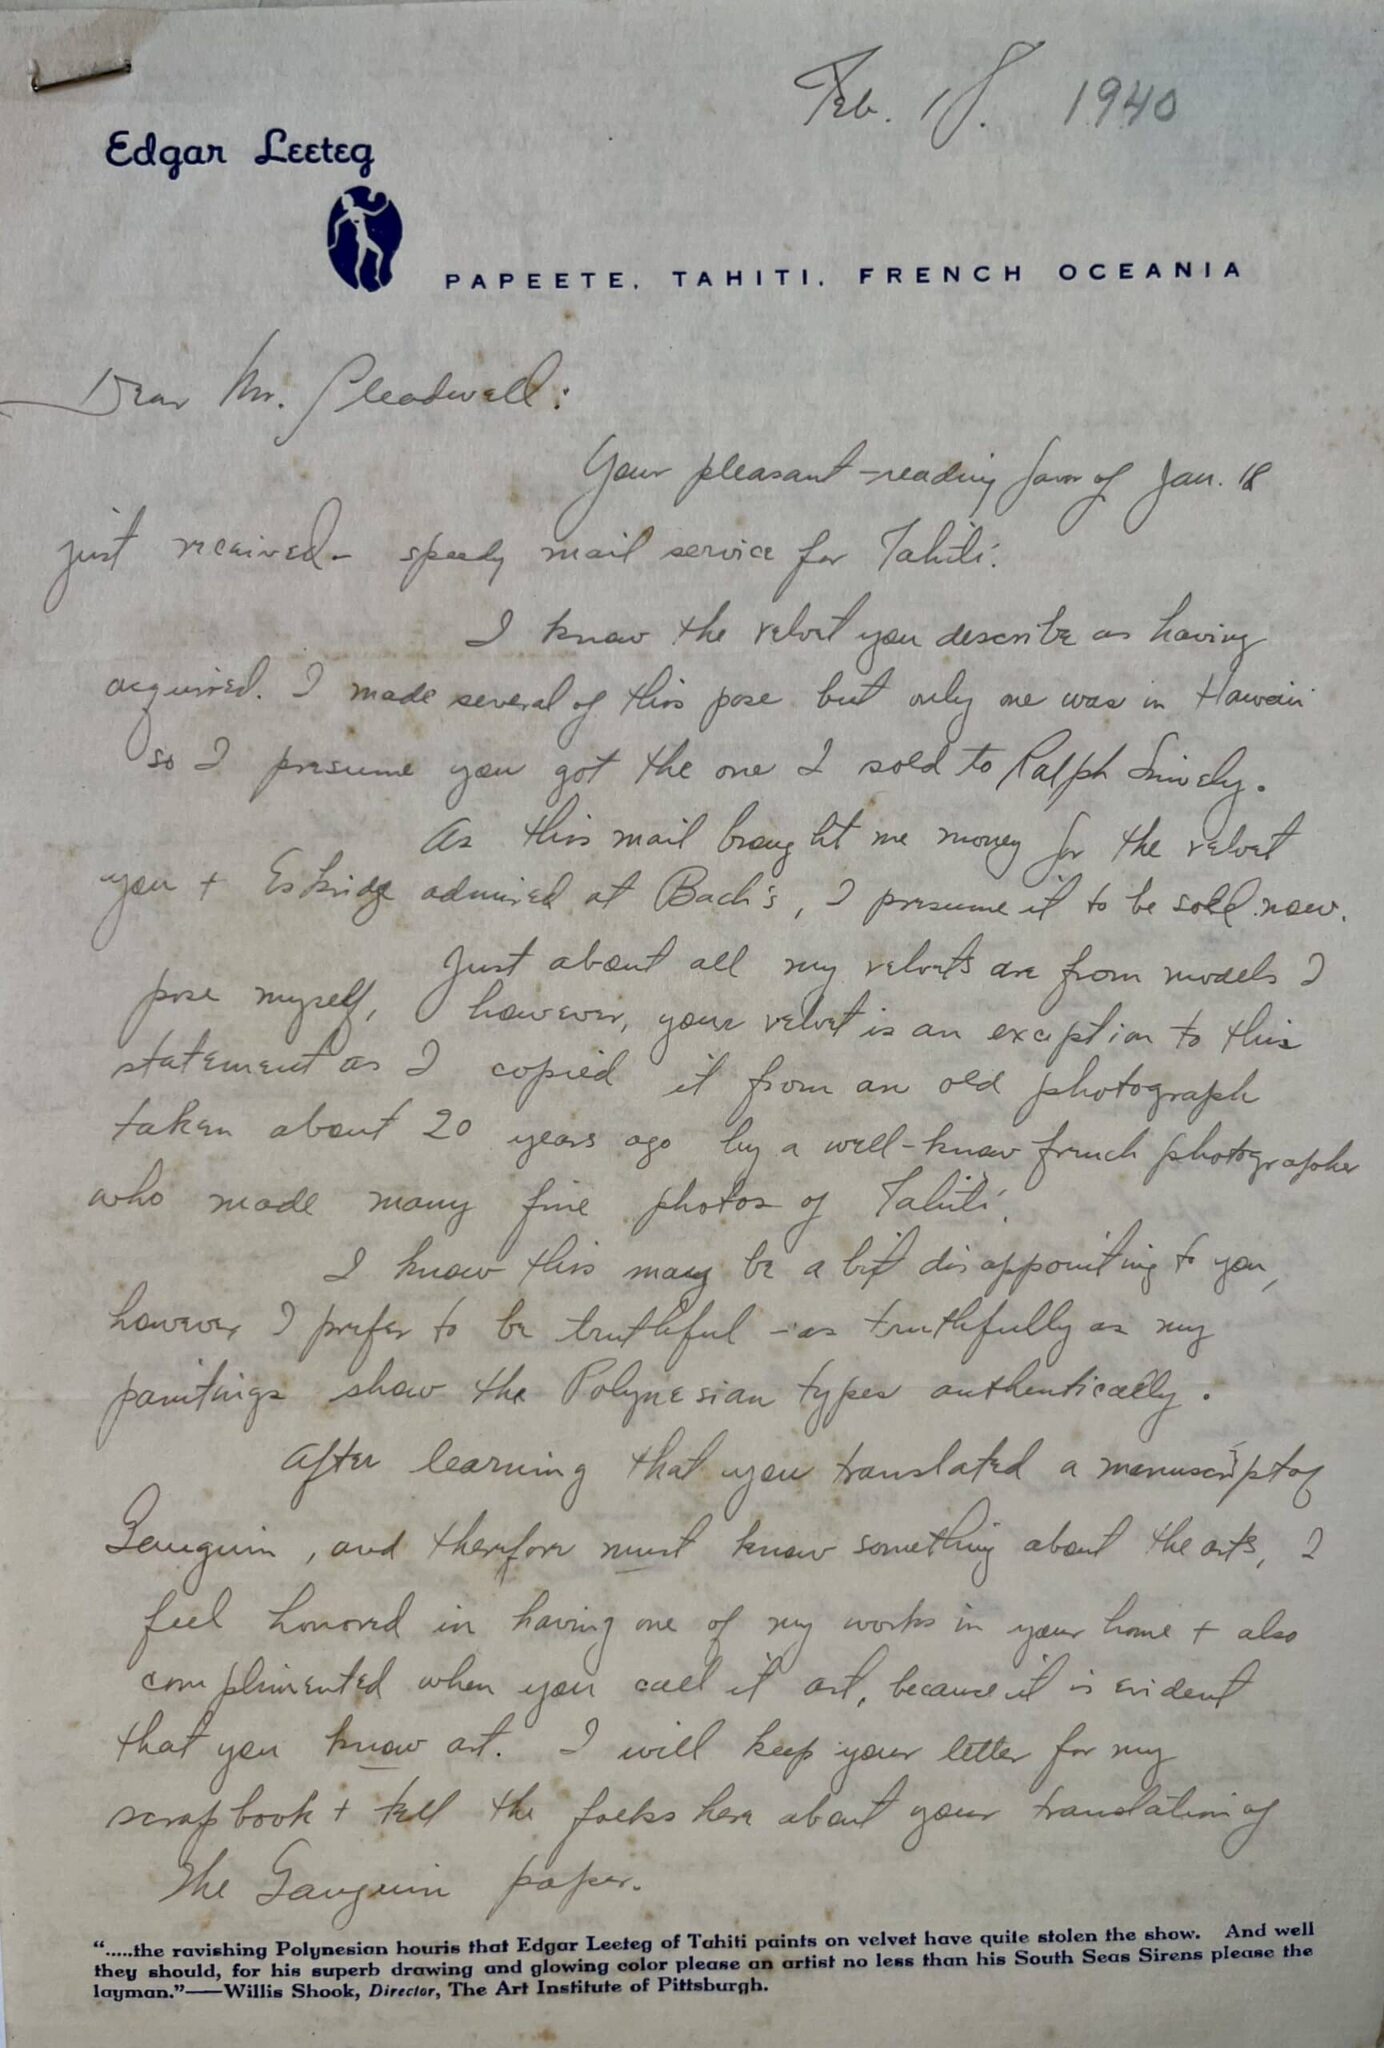 Feb. 18. 1940
Edgar Leeteg
PAPEETE, TAHITI, FRENCH OCEANIA
Dear Mr. Pleadwell:
Your pleasant-reading favor of Jan. 18
just received - speedy mail service for Tahiti.
I know the velvet you describe as having
acquired. I made several of this pose but only one was in Hawaii
so I presume you got the one I sold to Ralph Snively.
As this mail brought me money for the velvet
you + Eskridge admired at Bach's, I presume it to be sold now.
Just about all my velvets are from models I
pose myself, however, your velvet is an exception to this
statement as I copied it from an old photograph
taken about 20 years ago by a well-know french photographer
who made many fine photos of Tahiti.
I know this may be a bit disappointing to you,
however, I prefer to be truthful - as truthfully as my
paintings show the Polynesian types authentically.
After learning that you translated a manuscript of
Gauguin, and therefore must know something about the arts, I
feel honored in having one of my works in your home + also
complimented when you call it art, because it is evident
that you know art. I will keep your letter for my
scrapbook + tell the folks here about your translation of
the Gauguin paper.
“.....the ravishing Polynesian houris that Edgar Leeteg of Tahiti paints on velvet have quite stolen the show. And well
they should, for his superb drawing and glowing color please an artist no less than his South Seas Sirens please the
layman.”——Willis Shook, Director, The Art Institute of Pittsburgh.